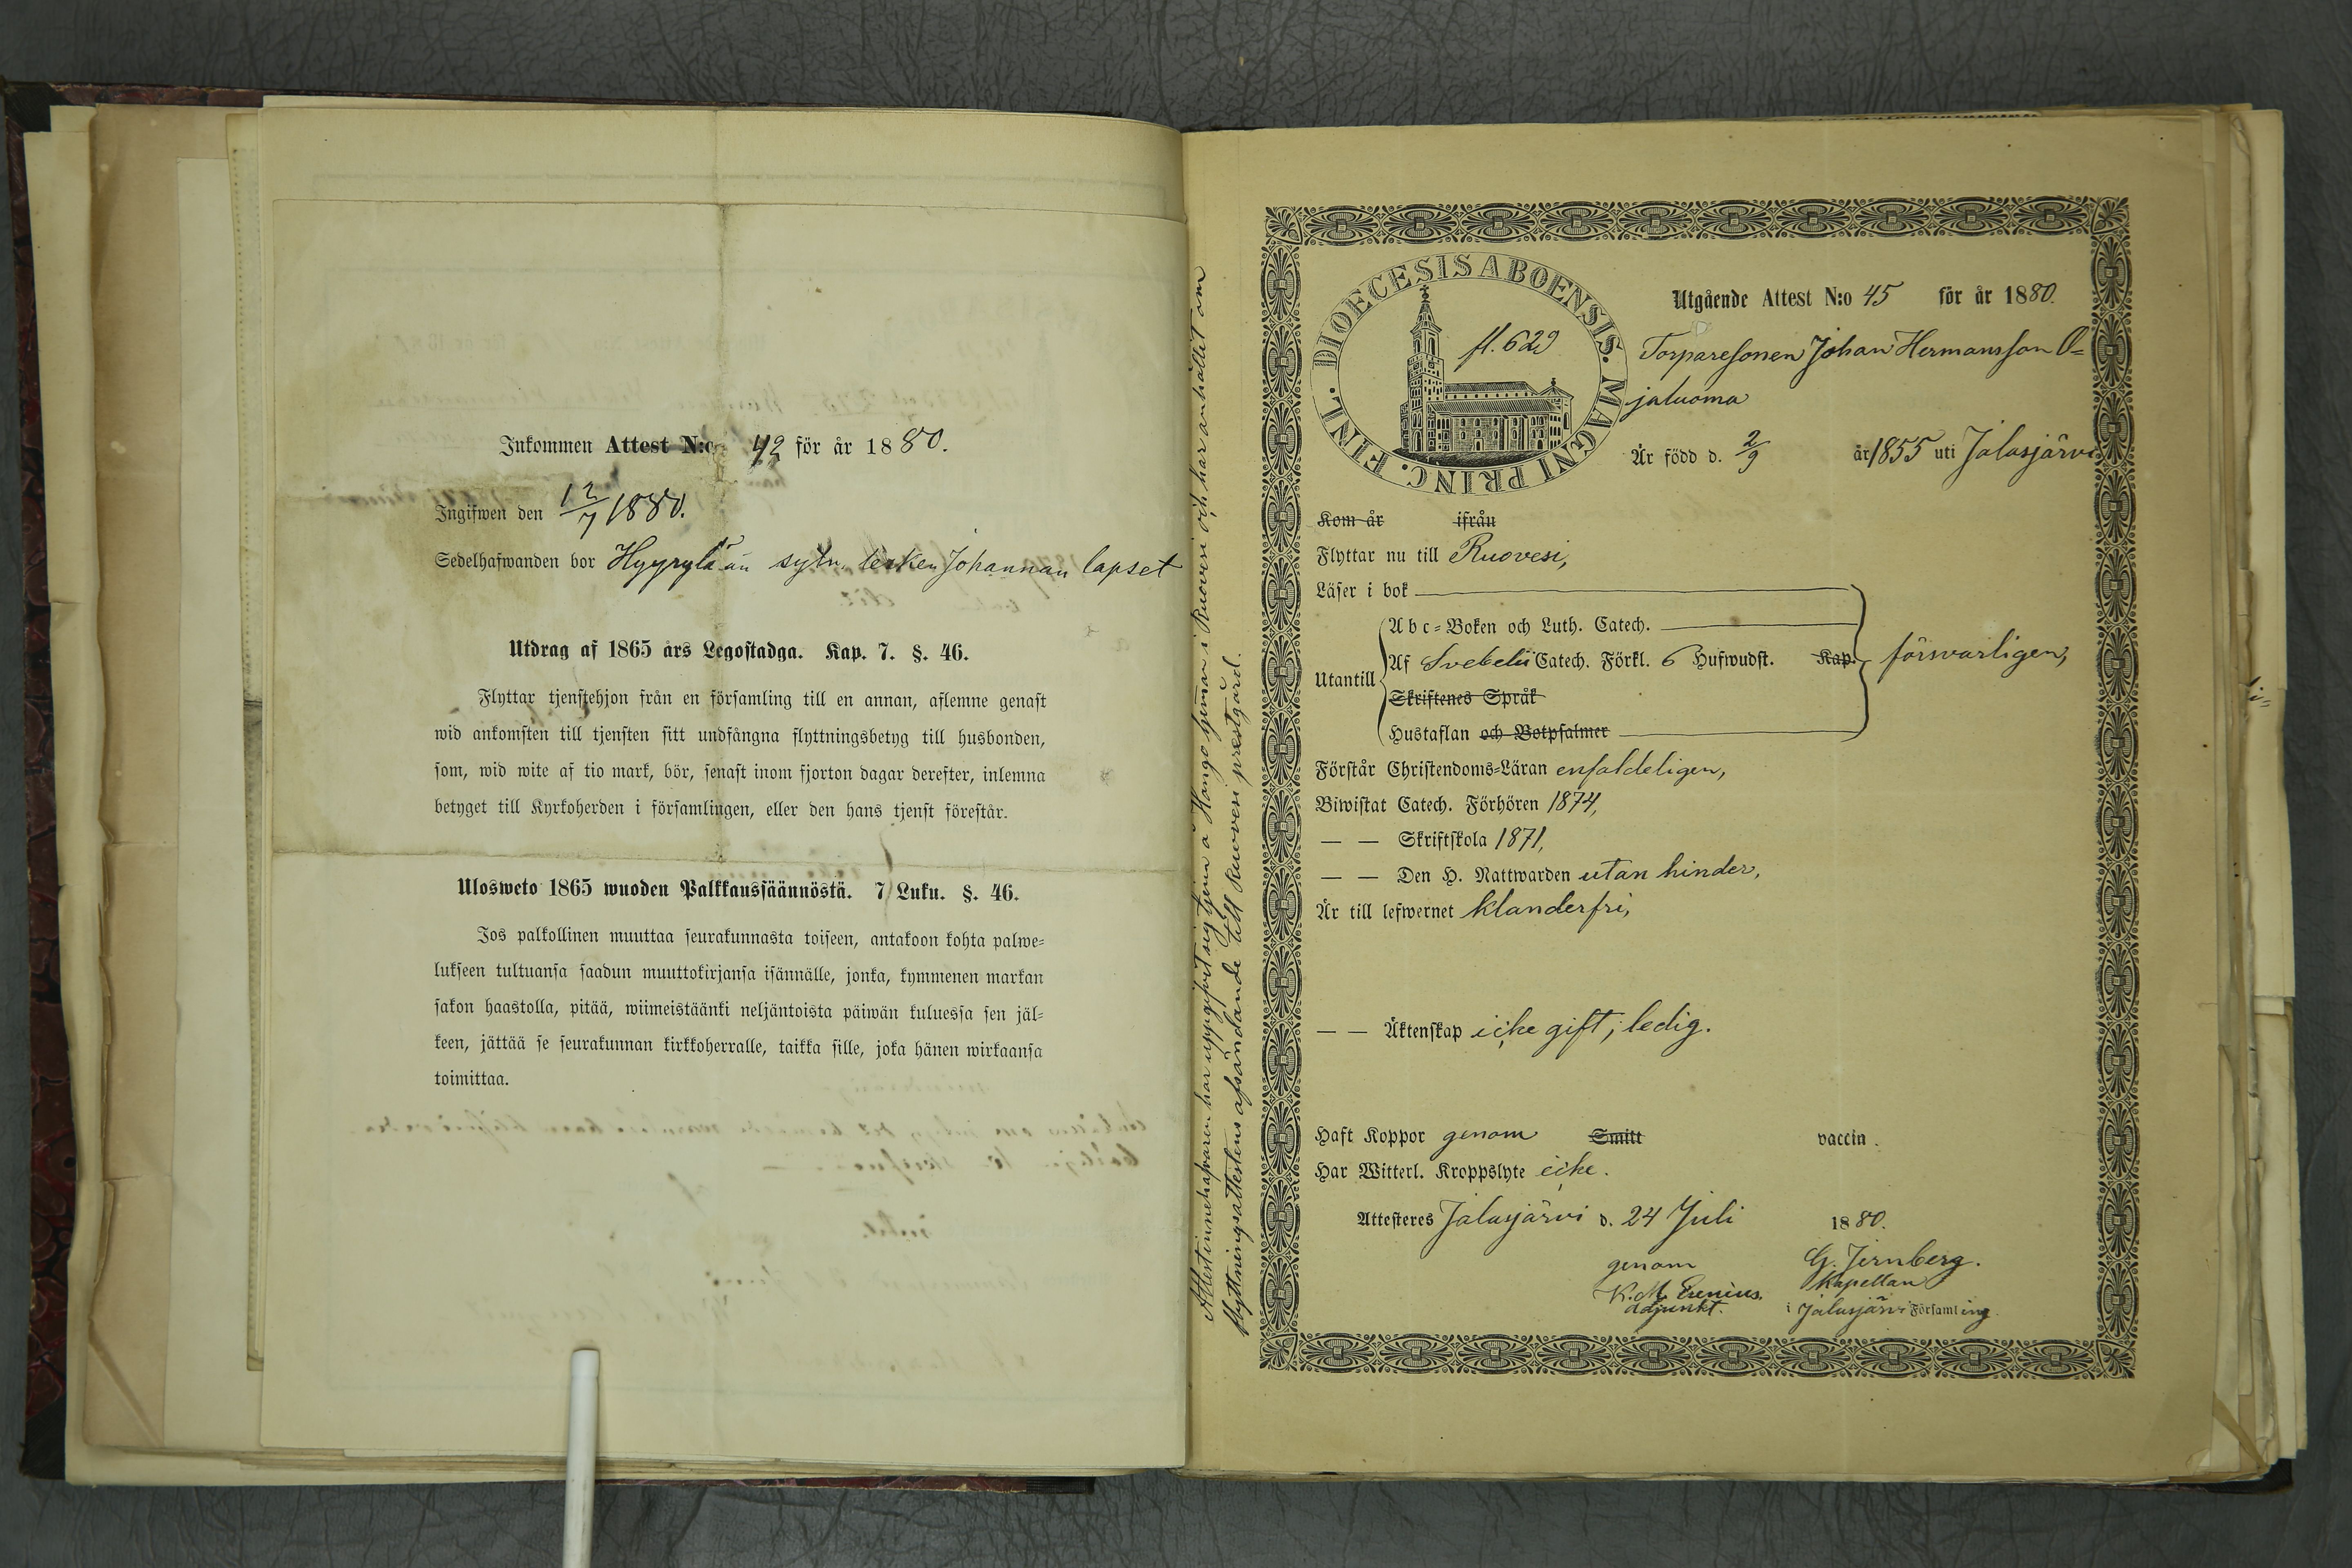 Inkommen Attest N:o 42 för år 1880.
Ingifwen den 12/7 1880.
Sedelhafwanden bor Hyyrylään sytn. lesken Johannan lapset
Utdrag af 1865 års Legostadga. Kap. 7. §. 46.
Flyttar tjenstehjon från en församling till en annan, aflemne genast
wid ankomsten till tjensten sitt undfångna flyttningsbetyg till husbonden,
som, wid wite af tio mark, bör, senast inom fjorton dagar derefter, inlemna
betyget till Kyrkoherden i församlingen, eller den hans tjenst förestår.
Ulosweto 1865 wuoden Palkkaussäännöstä. 7 Luku. §. 46.
Jos palkollinen muuttaa seurakunnasta toiseen, antakoon kohta palwe=
lukseen tultuansa saadun muuttokirjansa isännälle, jonka, kymmenen markan
sakon haastolla, pitää, wiimeistäänki neljäntoista päiwän kuluessa sen jäl=
keen, jättää se seurakunnan kirkkoherralle, taikka sille, joka hänen wirkaansa
toimittaa.
Attestinnehafvaren har uppgifvit sig tjena å Hongo hemman i Ruovesi och har anhållit om
flyttningsattestens afsändande till Ruovesi prestgård.
DIOECESIS ABOENSIS. MAGNI PRINC. FINL.
fl. 629
Utgående Attest N:o 45 för år 1880.
Torparesonen Johan Hermansson O=
jaluoma
Är född d. 2/9 år 1855 uti Jalasjärvi
Kom år ifrån
Flyttar nu till Ruovesi,
Läser i bok
Abc=Boken och Luth. Catech.
Utantill Af Svebelii Catech. Förkl. 6 Hufwudst. Kap. försvarligen,
Skriftenes Språk
Hustaflan och Botpsalmer
Förstår Christendoms=Läran enfaldeligen,
Biwistat Catech. Förhören 1874,
— — Skriftskola 1871,
— — Den H. Nattwarden utan hinder,
Är till lefwernet klanderfri,
— — Äktenskap icke gift; ledig.
Haft Koppor genom Smitt vaccin.
Har Witterl. Kroppslyte icke.
Attesteres Jalasjärvi d. 24 Juli 1880.
genom G. Jernberg.
K. M. Kapellan
adjunkt. i Jalasjärvi Församling